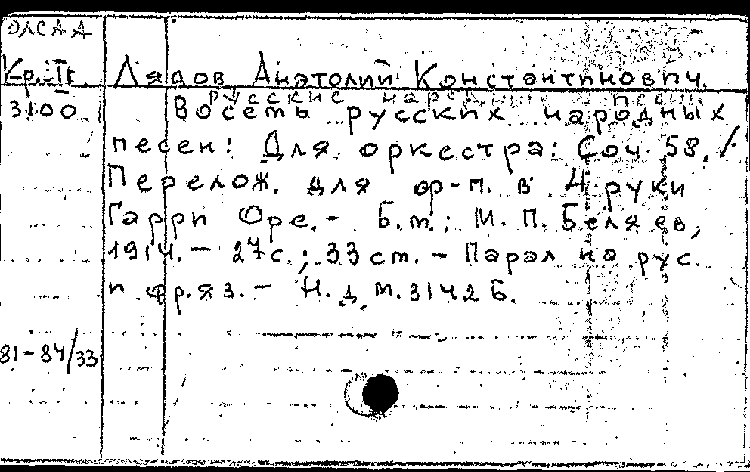 ОЛСАА
Кр.-II. Лядов Анатолий Константинович.
Русские народн песни
3100 Восемь русских народных
песен: Для оркестра: Соч. 58. /
Перелож. для ф-п. в 4 руки
Гарри Оре. - Б.м.: М. П. Беляев,
1914. - 27с.; 33 cm. - Парал на рус.
и фр.яз. - Н.д. М.3142 Б.
81-84/33